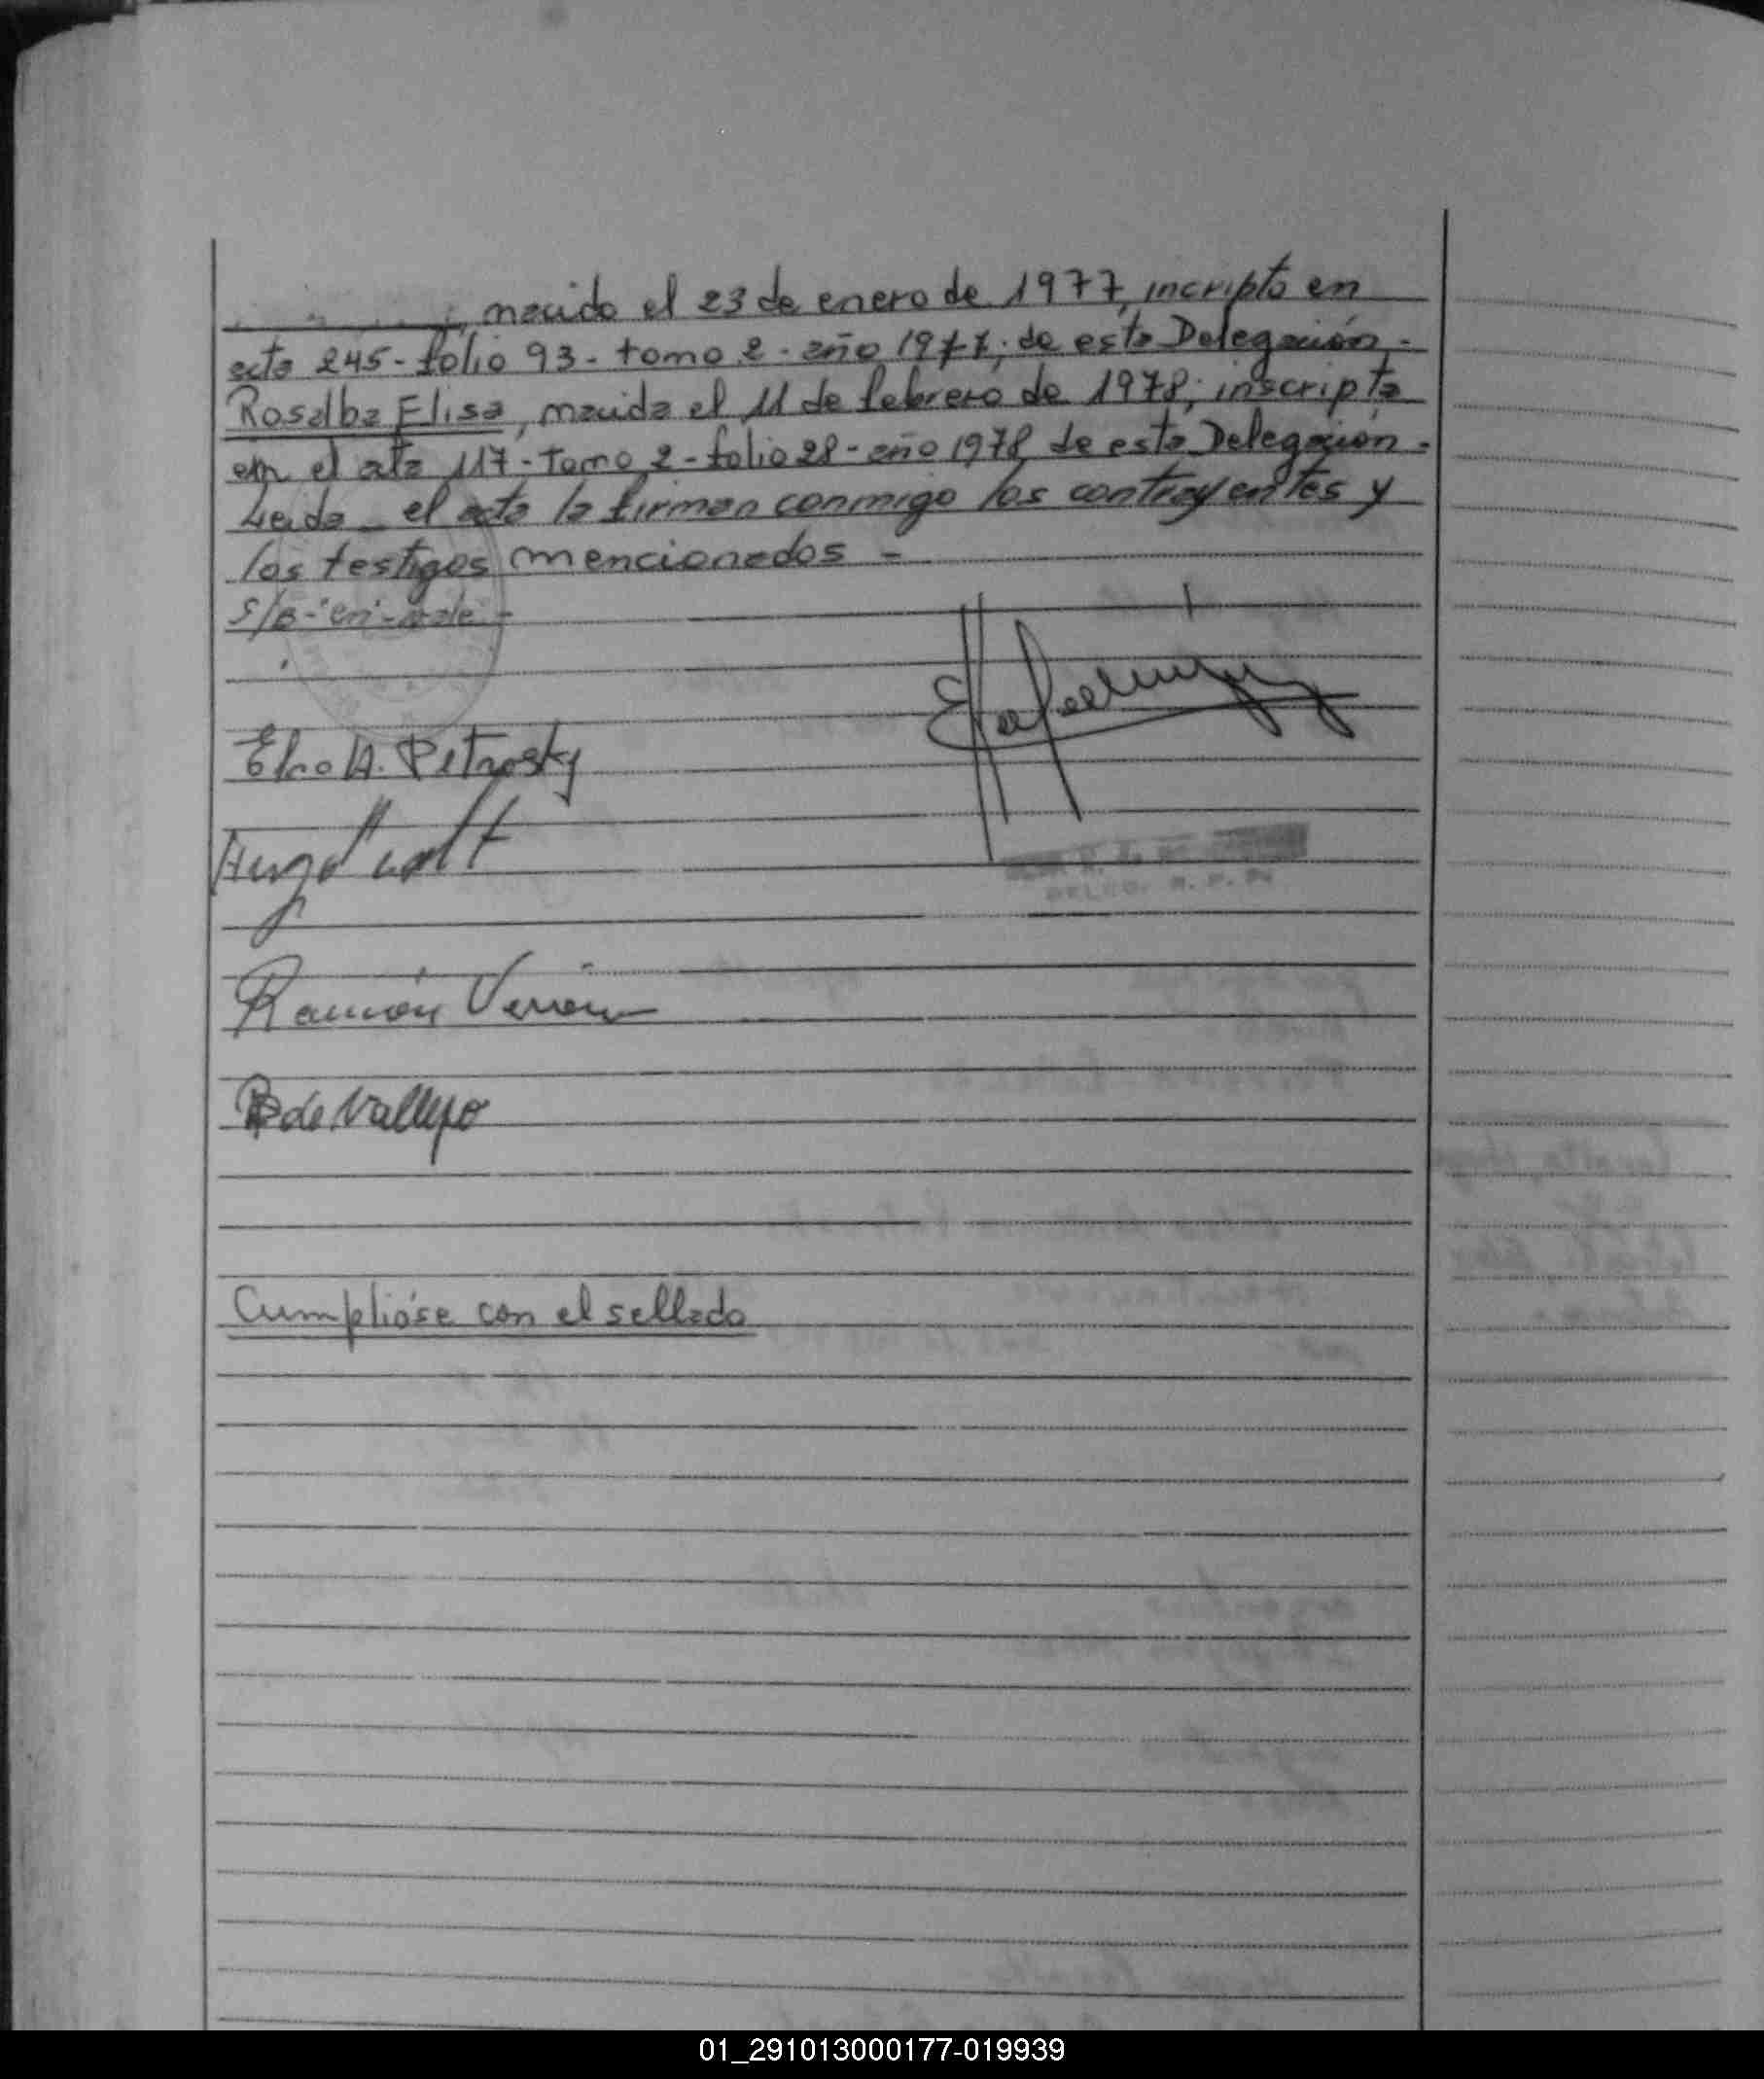 nacido el 23 de enero de 1977, incripto en
acta 245 - folio 93 - tomo 2 - año 1977; de esta Delegación -
Rosalba Elisa, nacida el 11 de febrero de 1978; inscripta
en el ata 117 - Tomo 2 - folio 28 - año 1978 de esta Delegación -
Leida el acta la firman conmigo los contrayentes y
los testigos mencionados =
S/B - "en" - vale -
A. Petrosky
Hugo
Ramón
de Vallejo
Cumplióse con el sellado
01_291013000177-019939